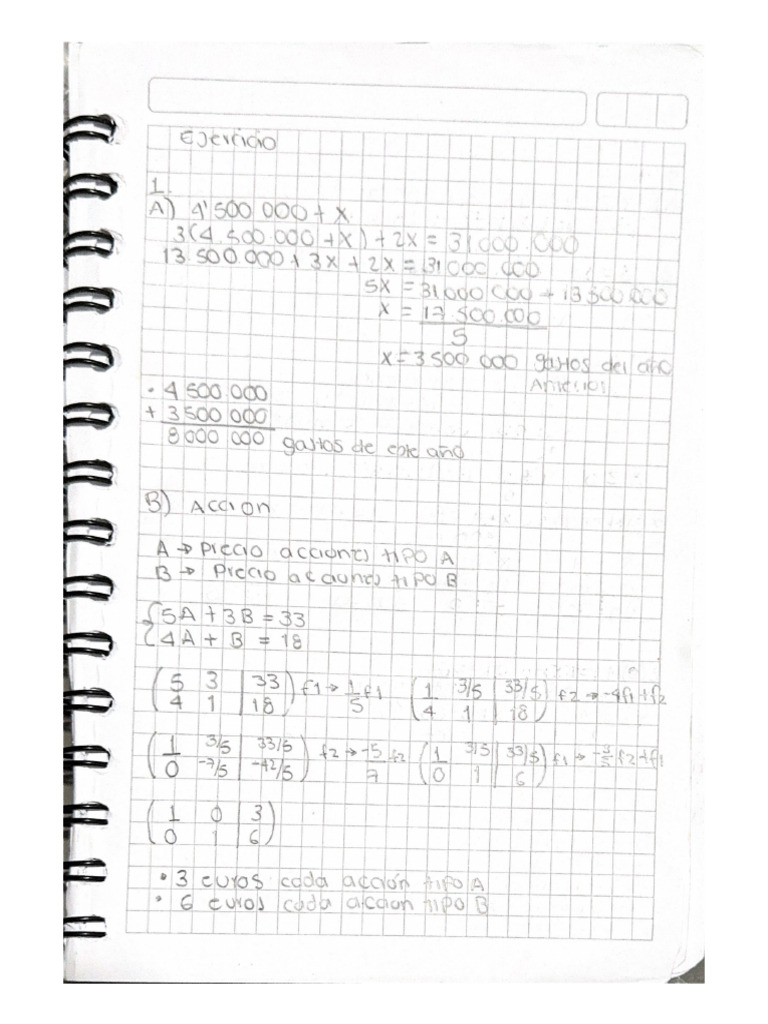 Ejercicio
1.
A) 4'500 000 + x
3(4.500.000 + x) + 2x = 31 000.000
13.500.000 + 3x + 2x = 31 000.000
5x = 31 000 000 - 13 500 000
x = 17.500.000
5
x = 3 500 000 gastos del año
Anterior
• 4 500.000
+ 3 500 000
8 000 000 gastos de este año
B) Accion
A → Precio acciones tipo A
B → Precio acciones tipo B
{5A + 3B = 33
{4A + B = 18
(5 3 | 33) f1 → 1/5 f1 (1 3/5 | 33/5) f2 → -4f1+f2
(4 1 | 18) (4 1 | 18)
(1 3/5 | 33/5) f2 → -5/7 f2 (1 3/5 | 33/5) f1 → -3/5 f2+f1
(0 -7/5 | -42/5) (0 1 | 6)
(1 0 | 3)
(0 1 | 6)
• 3 euros cada acción tipo A
• 6 euros cada accion tipo B